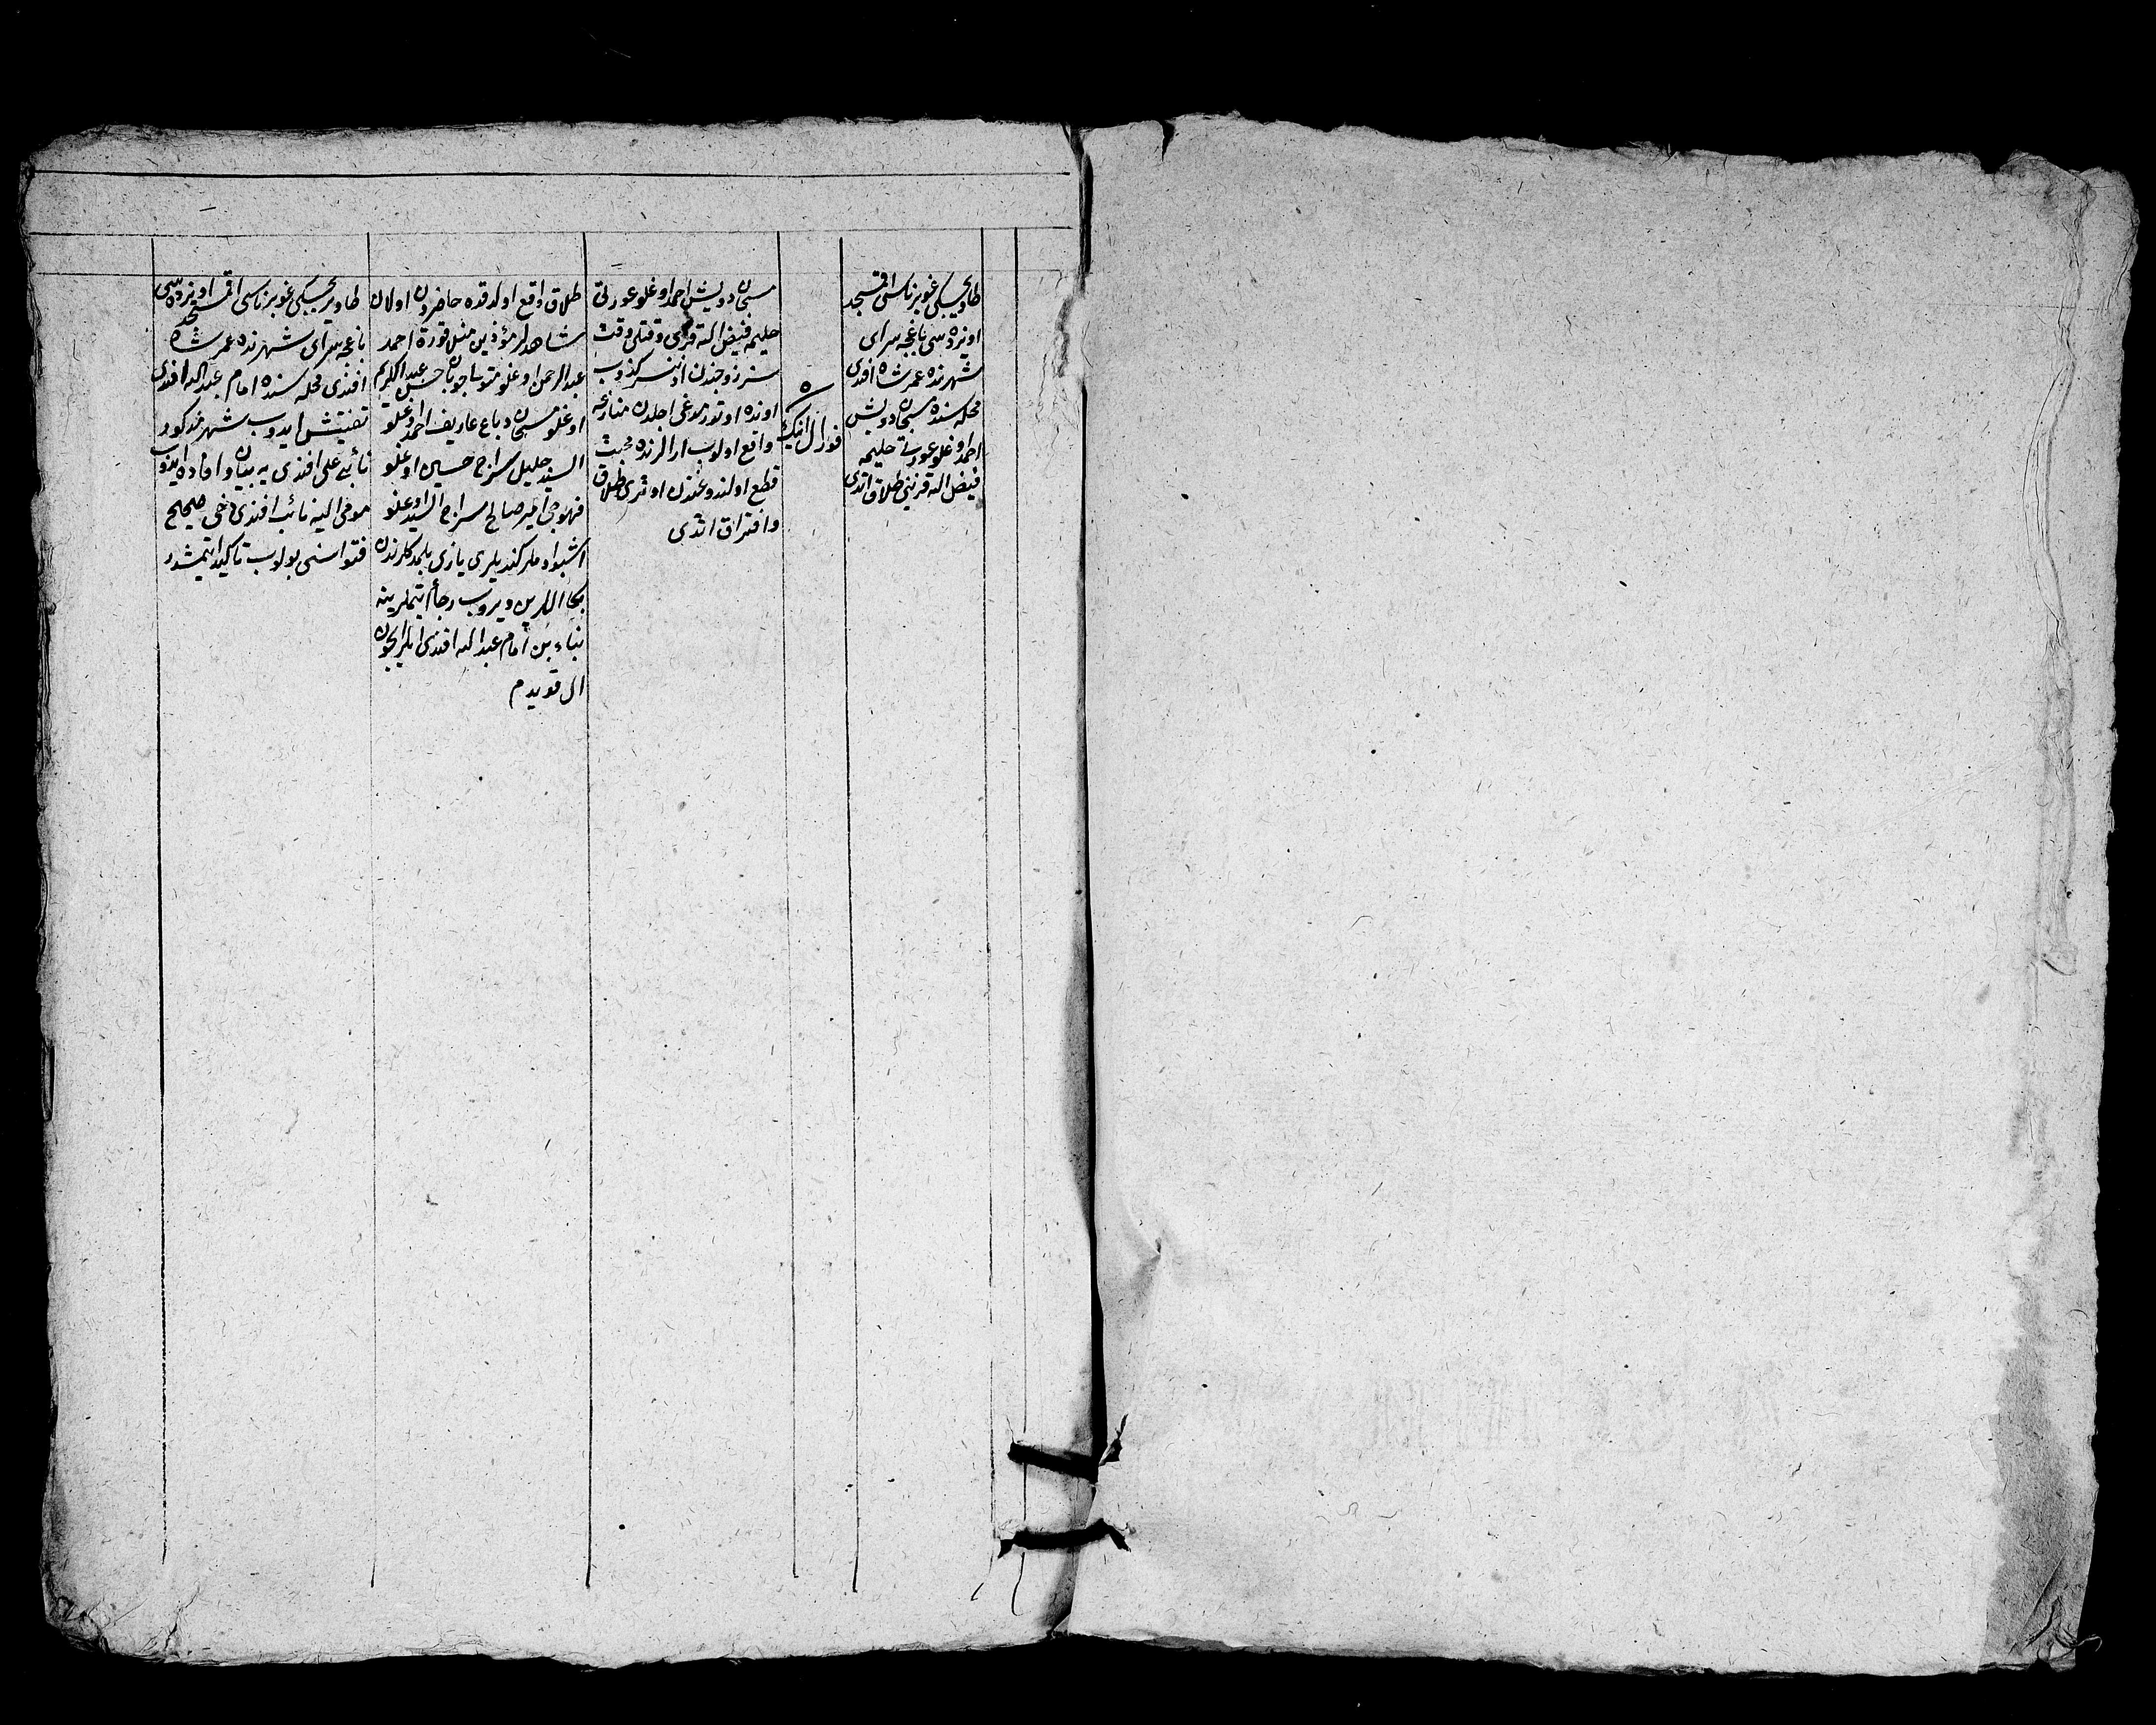 طاوریچیسکی غوبرناسی اقمسجد
اویزدهسی باغچه سرای
شهرنده عمر شاه افندی
محله سنده مسجان دویش
احمد اوغلو عورتی حلیمه
فیض الله قزینی طلاق اتدی
۵
فورال انیك
مسجان دویش احمد اوغلو عورتی
حلیمه فیض الله قزی وقتلی وقت
سز زوجندن اذنسز کزوب
اونده اوتورموغی اجلدن منازعه
واقع اولوب ارالرنده محبت
قطع اولندوغندن اوتری طلاق
وافتراق اتدی
طلاق واقع اولدقده حاضرون اولان
شاهدلر مؤذین منلا قورة احمد
عبد الرحمن اوغلو متوسا جوبان حسن عبد الکریم
اوغلو مسجان دباغ عاریف احمد اوغلو
السید جلیل سراج حسین اوغلو
قهوجی امیر صالح سراج السید اوغلو
اشبو ادملر کندیلری یازی بلمدکلرندن
بکا اللرین ویروب رجأ اتیملرینه
بناء بن امام عبد الله افندی ایلر ایچون
ال قویدم
طاوریچیسکی غوبرناسی اقمسجد اویزدهسی
باغچه سرای شهرنده عمر شاه
افندی محله سنده امام عبد الله افندی
تفتیش ایدوب شهر مذکور
نائبی علی افندی یه بیان وافاده ایدوب
مومی الیه نائب افندی دخی صحیح
فتواسنی بولوب تاکید اتیمشدر